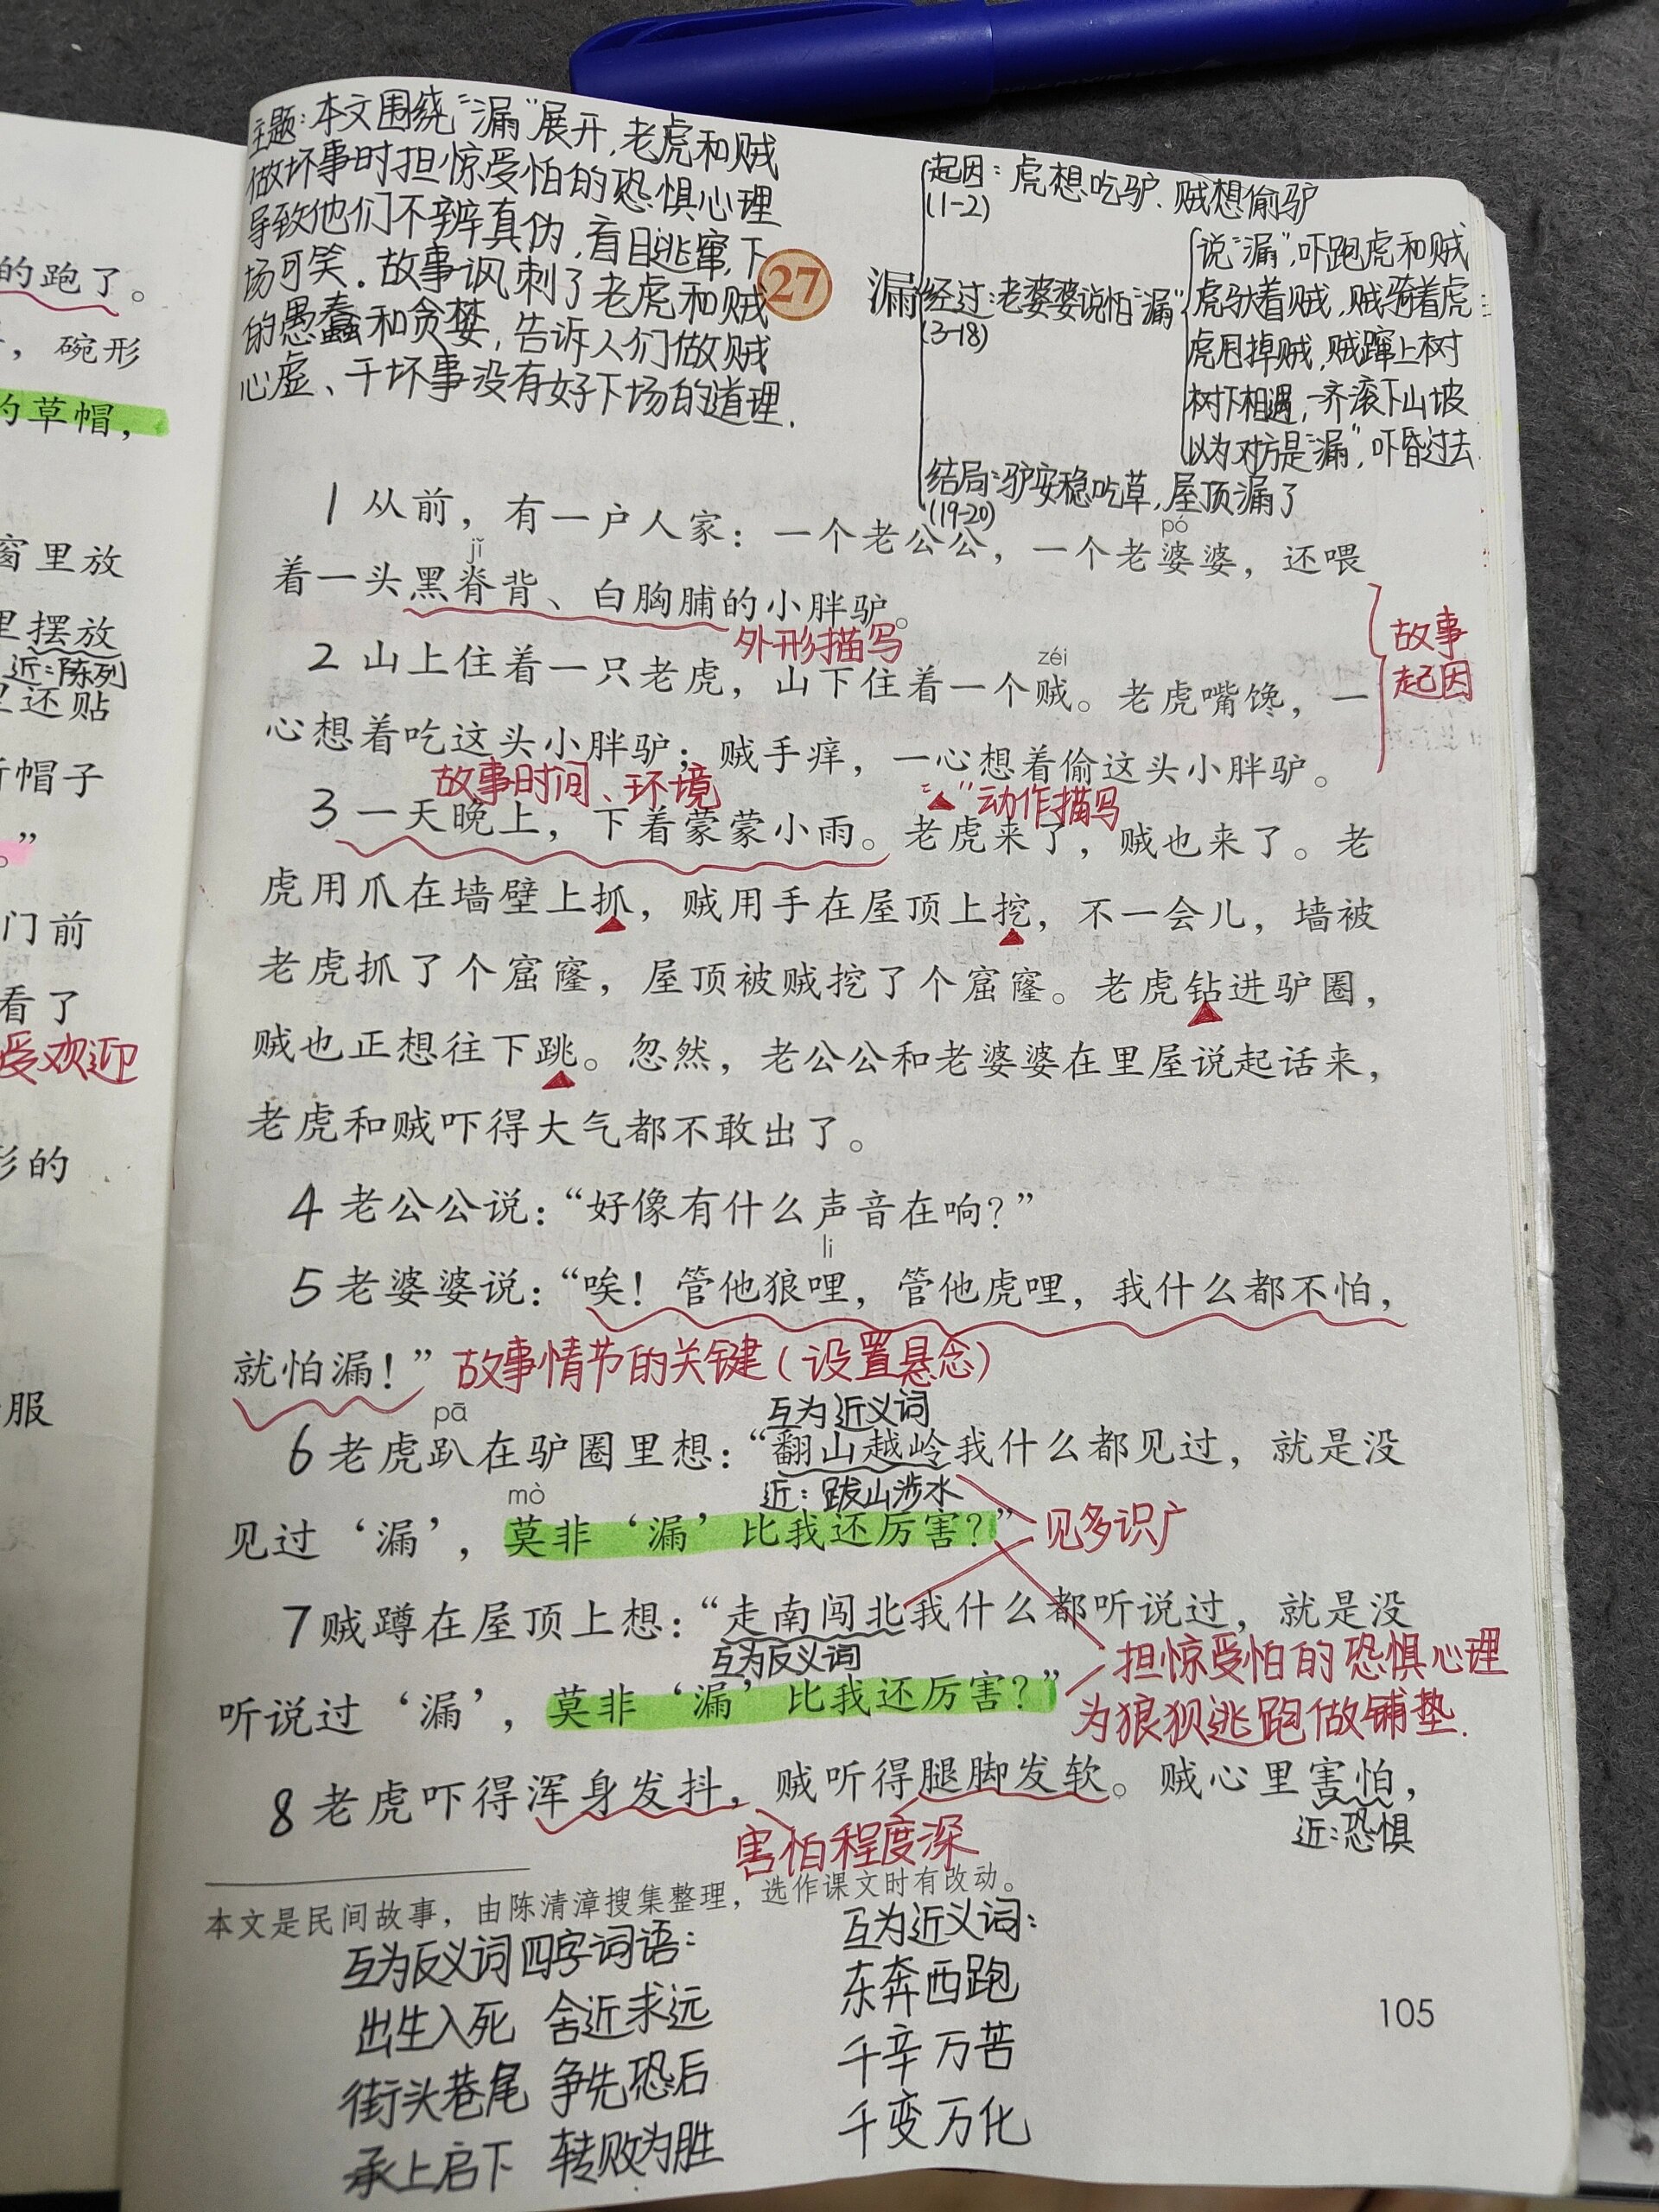 的跑了。
，碗形
的草帽，
窗里放
里摆放
近：陈列
里还贴
帽子
。”
门前
看了
受欢迎
形的
服
主题：本文围绕“漏”展开，老虎和贼
做坏事时担惊受怕的恐惧心理
导致他们不辨真伪，盲目逃窜，下
场可笑．故事讽刺了老虎和贼
的愚蠢和贪婪，告诉人们做贼
心虚、干坏事没有好下场的道理．
27
漏
起因：虎想吃驴、贼想偷驴
(1-2)
经过：老婆婆说怕“漏”
(3-18)
说“漏”，吓跑虎和贼
虎驮着贼，贼骑着虎
虎甩掉贼，贼蹿上树
树下相遇，一齐滚下山坡
以为对方是“漏”，吓昏过去
结局：驴安稳吃草，屋顶漏了
(19-20)
pó
1 从前，有一户人家：一个老公公，一个老婆婆，还喂
jǐ
着一头黑脊背、白胸脯的小胖驴。
外形描写
故事
起因
zéi
2 山上住着一只老虎，山下住着一个贼。老虎嘴馋，一
心想着吃这头小胖驴；贼手痒，一心想着偷这头小胖驴。
故事时间、环境
“▲”动作描写
3 一天晚上，下着蒙蒙小雨。老虎来了，贼也来了。老
虎用爪在墙壁上抓，贼用手在屋顶上挖，不一会儿，墙被
老虎抓了个窟窿，屋顶被贼挖了个窟窿。老虎钻进驴圈，
贼也正想往下跳。忽然，老公公和老婆婆在里屋说起话来，
老虎和贼吓得大气都不敢出了。
4 老公公说：“好像有什么声音在响？”
li
5 老婆婆说：“唉！管他狼哩，管他虎哩，我什么都不怕，
就怕漏！”
故事情节的关键（设置悬念）
pā
互为近义词
6 老虎趴在驴圈里想：“翻山越岭我什么都见过，就是没
mò
近：跋山涉水
见过‘漏’，莫非‘漏’比我还厉害？”
见多识广
7 贼蹲在屋顶上想：“走南闯北我什么都听说过，就是没
互为反义词
听说过‘漏’，莫非‘漏’比我还厉害？”
担惊受怕的恐惧心理
为狼狈逃跑做铺垫．
8 老虎吓得浑身发抖，贼听得腿脚发软。贼心里害怕，
害怕程度深
近：恐惧
本文是民间故事，由陈清漳搜集整理，选作课文时有改动。
互为反义词四字词语：
出生入死 舍近求远
街头巷尾 争先恐后
承上启下 转败为胜
互为近义词：
东奔西跑
千辛万苦
千变万化
105